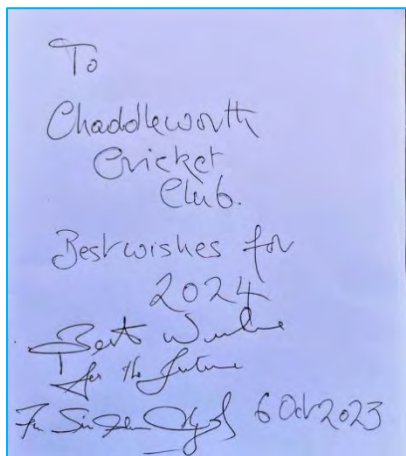 To
Chaddleworth
Cricket
Club.
Best wishes for
2024
Best Wishes
for the future
6 Oct 2023